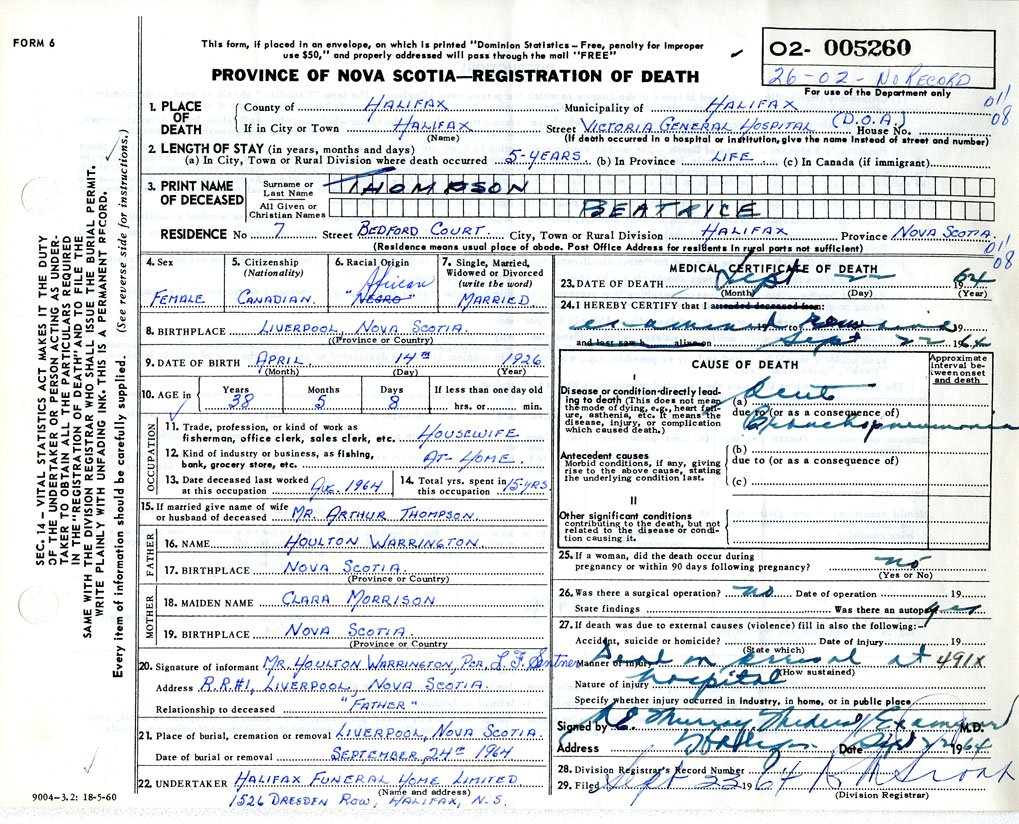 FORM 6
This form, if placed in an envelope, on which is printed "Dominion Statistics – Free, penalty for improper
use $50," and properly addressed will pass through the mail "FREE"
PROVINCE OF NOVA SCOTIA—REGISTRATION OF DEATH
02- 005260
26-02- NO RECORD
For use of the Department only
011
08
1. PLACE OF DEATH
County of HALIFAX Municipality of HALIFAX
If in City or Town HALIFAX Street VICTORIA GENERAL HOSPITAL (D.O.A.) House No.
(Name) (If death occurred in a hospital or institution, give the name instead of street and number)
2. LENGTH OF STAY (in years, months and days)
(a) In City, Town or Rural Division where death occurred 5-YEARS (b) In Province LIFE (c) In Canada (if immigrant)
3. PRINT NAME OF DECEASED
Surname or Last Name THOMPSON
All Given or Christian Names BEATRICE
RESIDENCE No 7 Street BEDFORD COURT City, Town or Rural Division HALIFAX Province NOVA SCOTIA.
(Residence means usual place of abode. Post Office Address for residents in rural parts not sufficient)
011
08
4. Sex
FEMALE
5. Citizenship
(Nationality)
CANADIAN.
6. Racial Origin
African
"NEGRO"
7. Single, Married, Widowed or Divorced
(write the word)
MARRIED
8. BIRTHPLACE LIVERPOOL, NOVA SCOTIA.
((Province or Country)
9. DATE OF BIRTH APRIL 14TH 1926
(Month) (Day) (Year)
10. AGE in Years 38 Months 5 Days 8 If less than one day old
hrs. or min.
OCCUPATION
11. Trade, profession, or kind of work as
fisherman, office clerk, sales clerk, etc. HOUSEWIFE
12. Kind of industry or business, as fishing,
bank, grocery store, etc. AT HOME.
13. Date deceased last worked
at this occupation AUG. 1964
14. Total yrs. spent in
this occupation 15-YRS.
15. If married give name of wife
or husband of deceased MR. ARTHUR THOMPSON
FATHER
16. NAME HOULTON WARRINGTON.
17. BIRTHPLACE NOVA SCOTIA
(Province or Country)
MOTHER
18. MAIDEN NAME CLARA MORRISON
19. BIRTHPLACE NOVA SCOTIA.
(Province or Country
20. Signature of informant MR. HOULTON WARRINGTON, PER, L.F. Sentner
Address R.R.#1, LIVERPOOL, NOVA SCOTIA.
Relationship to deceased "FATHER"
21. Place of burial, cremation or removal LIVERPOOL, NOVA SCOTIA.
Date of burial or removal SEPTEMBER 24TH 1964
22. UNDERTAKER HALIFAX FUNERAL HOME LIMITED.
(Name and address)
1526 DRESDEN ROW, HALIFAX, N.S.
MEDICAL CERTIFICATE OF DEATH
23. DATE OF DEATH Sept 22 1964
(Month) (Day) (Year)
24. I HEREBY CERTIFY that I attended deceased from:
examined remains
19 to 19
and last saw h alive on Sept 22 1964
CAUSE OF DEATH
Approximate interval between onset and death
I
Disease or condition directly leading to death (This does not mean the mode of dying, e.g., heart failure, asthenia, etc. It means the disease, injury, or complication which caused death.)
(a) Acute
due to (or as a consequence of)
Bronchopneumonia
Antecedent causes
Morbid conditions, if any, giving rise to the above cause, stating the underlying condition last.
(b)
due to (or as a consequence of)
(c)
II
Other significant conditions
contributing to the death, but not related to the disease or condition causing it.
25. If a woman, did the death occur during
pregnancy or within 90 days following pregnancy? no
(Yes or No)
26. Was there a surgical operation? no Date of operation 19
State findings Was there an autopsy yes
27. If death was due to external causes (violence) fill in also the following:—
Accident, suicide or homicide? Date of injury 19
(State which)
Manner of injury Dead on arrival at 491X
(How sustained)
Nature of injury hospital
Specify whether injury occurred in industry, in home, or in public place
Signed by Murray Medical Examiner M.D.
Address Halifax Date Sept 22 1964
28. Division Registrar's Record Number
29. Filed Sept 23 1964
(Division Registrar)
SEC. 14 – VITAL STATISTICS ACT MAKES IT THE DUTY
OF THE UNDERTAKER OR PERSON ACTING AS UNDER-
TAKER TO OBTAIN ALL THE PARTICULARS REQUIRED
IN THE "REGISTRATION OF DEATH" AND TO FILE THE
SAME WITH THE DIVISION REGISTRAR WHO SHALL ISSUE THE BURIAL PERMIT.
WRITE PLAINLY WITH UNFADING INK. THIS IS A PERMANENT RECORD.
Every item of information should be carefully supplied. (See reverse side for instructions.)
9004-3.2: 18-5-60